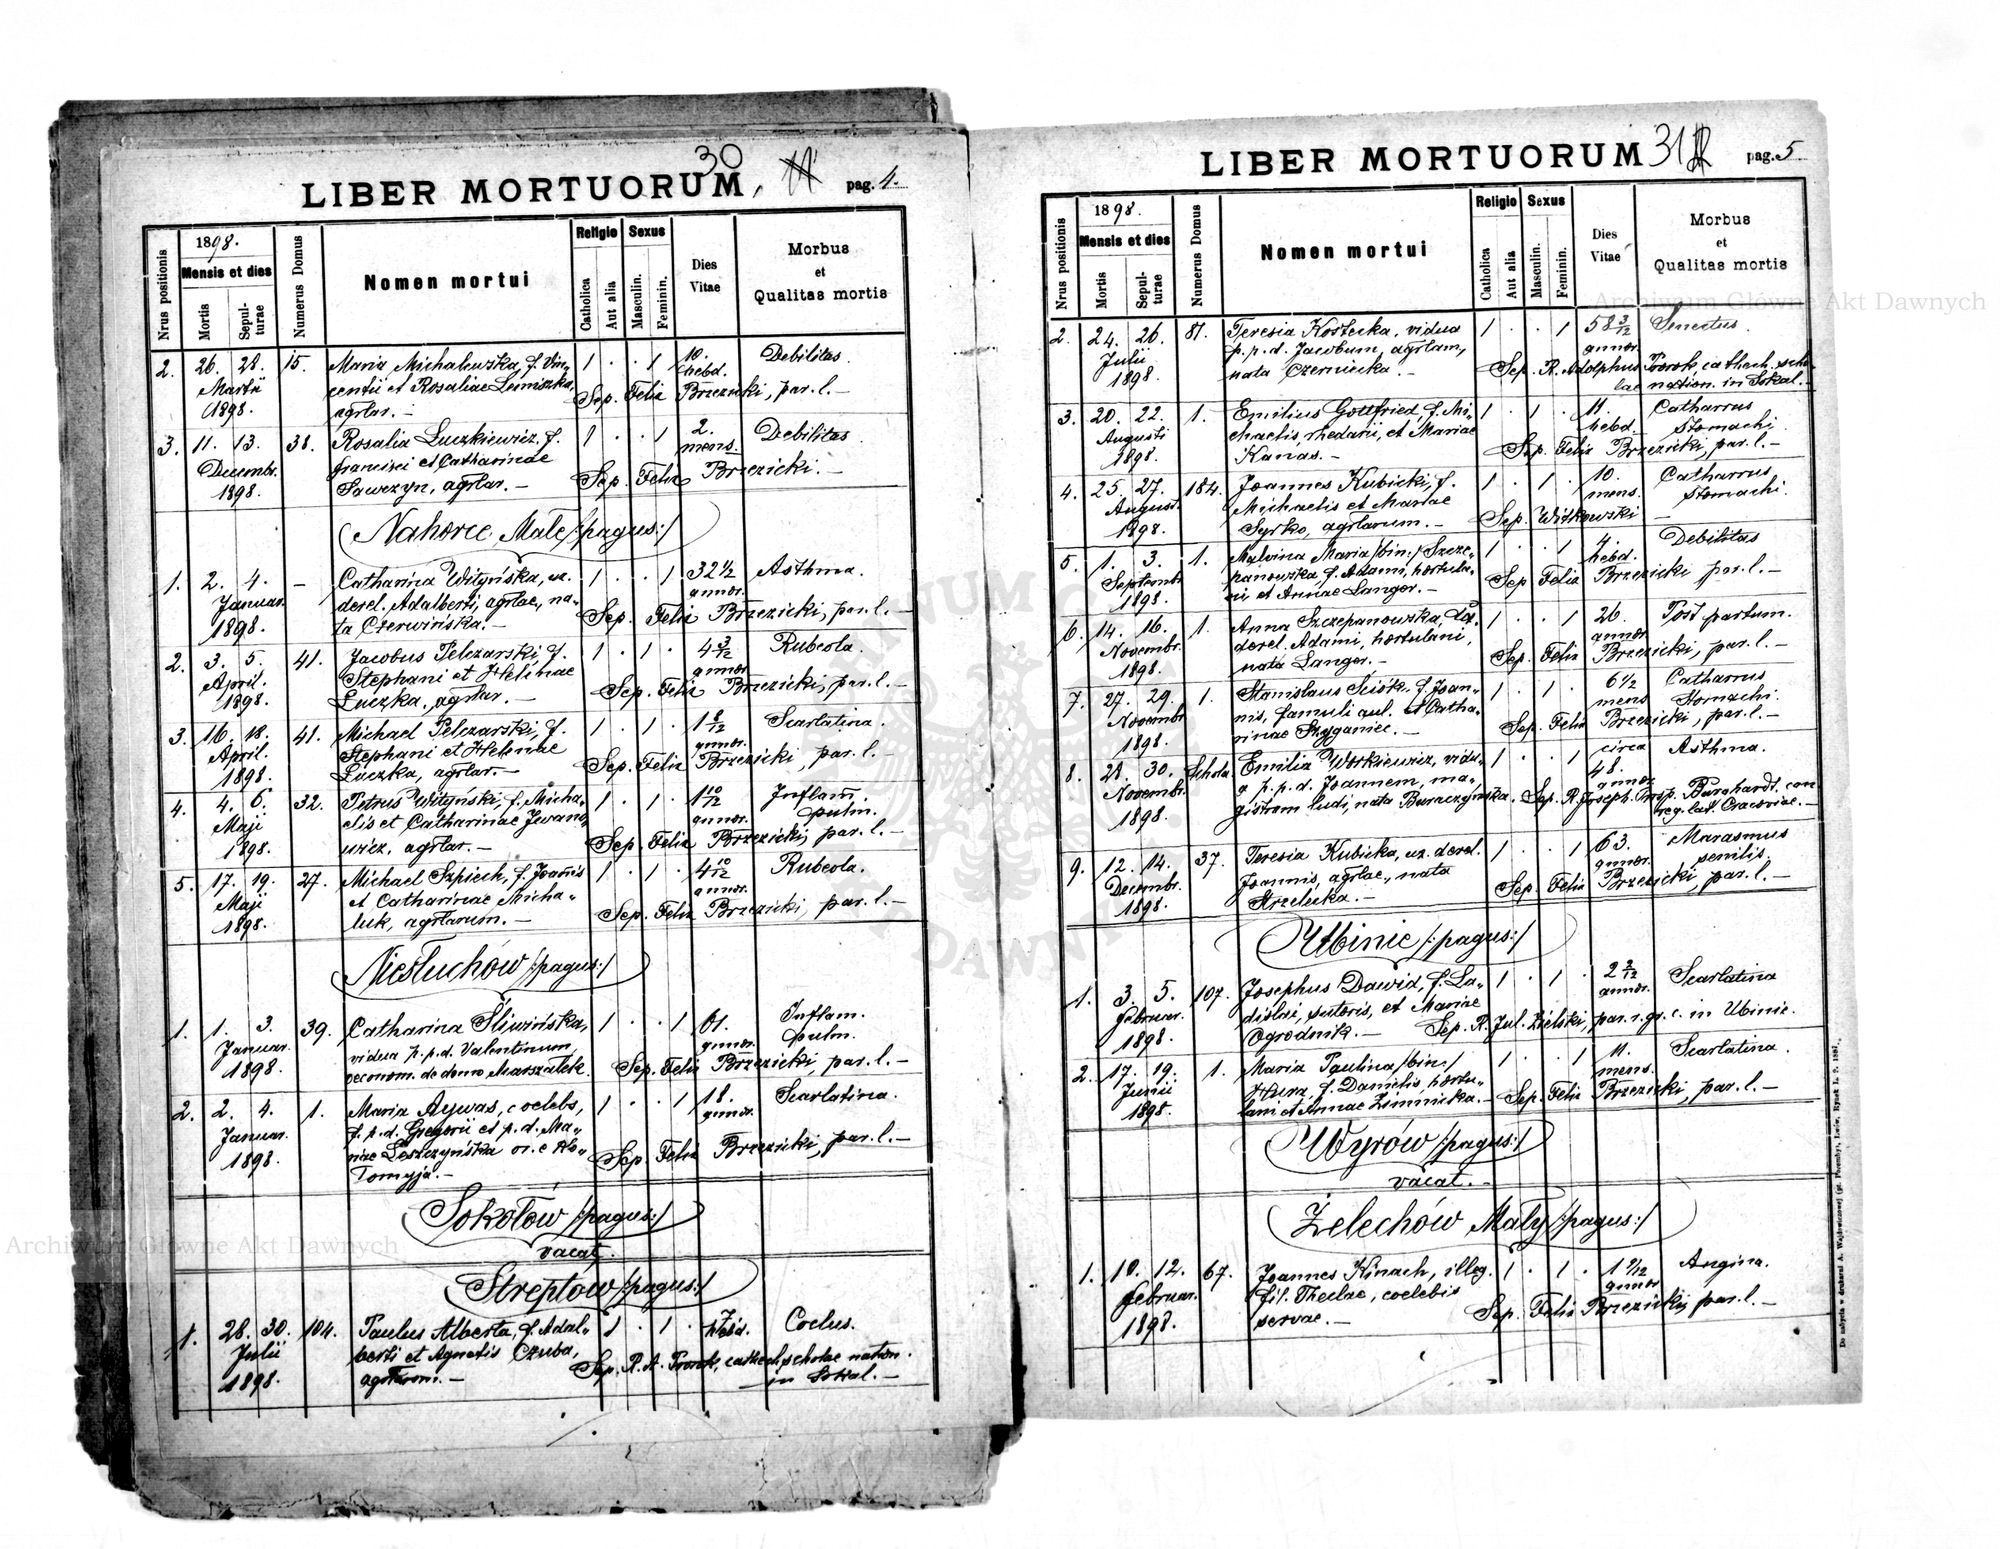 30
LIBER MORTUORUM, pag. 4.
Nrus positionis
1898.
Mensis et dies
Mortis
Sepulturae
Numerus Domus
Nomen mortui
Religio
Catholica
Aut alia
Sexus
Masculin.
Feminin.
Dies
Vitae
Morbus
et
Qualitas mortis
2. 26. 28. 15. Maria Michalewska, f. Vin- 1 . . 1 10. Debilitas.
Martii centii et Rosaliae Lemiszka, hebd.
1898. agrlar. — Sep. Felix Brzezicki, par. l. —
3. 11. 13. 38. Rosalia Luczkiewicz, f. 1 . . 1 2. Debilitas.
Decembr. Francisci et Catharinae mens.
1898. Sawczyn, agrlar. — Sep. Felix Brzezicki. —
Nahorce Małe /:pagus:/
1. 2. 4. — Catharina Wityńska, ux. 1 . . 1 32 1/2 Asthma.
Januar. derel. Adalberti, agrlae, na- annor.
1898. ta Czerwińska. — Sep. Felix Brzezicki, par. l. —
2. 3. 5. 41. Jacobus Pelczarski, f. 1 . 1 . 4 3/12 Rubeola.
April. Stephani et Helenae annor.
1898. Luczka, agrlar. — Sep. Felix Brzezicki, par. l. —
3. 16. 18. 41. Michael Pelczarski, f. 1 . 1 . 1 8/12 Scarlatina.
April. Stephani et Helenae annor.
1898. Luczka, agrlar. — Sep. Felix Brzezicki, par. l. —
4. 4. 6. 32. Petrus Wityński, f. Micha- 1 . 1 . 1 10/12 Inflam.
Maji elis et Catharinae Iwano- annor. pulm.
1898. wicz, agrlar. — Sep. Felix Brzezicki, par. l. —
5. 17. 19. 27. Michael Szpiech, f. Joannis 1 . 1 . 4 10/12 Rubeola.
Maji et Catharinae Micha- annor.
1898. luk, agrlarum. — Sep. Felix Brzezicki, par. l. —
Niesłuchów /:pagus:/
1. 1. 3. 39. Catharina Śliwińska, 1 . . 1 61. Inflam.
Januar. vidua p. p. d. Valentinum, annor. pulm.
1898. oeconom. de domo Marszałek. Sep. Felix Brzezicki, par. l. —
2. 2. 4. 1. Maria Aywas, coelebs, 1 . . 1 18. Scarlatina.
Januar. f. p. d. Gregorii et p. d. Ma- annor.
1898. riae Leszczyńska or. e Ko- Sep. Felix Brzezicki, par. l. —
lomyja. —
Sokołów /:pagus:/
vacat.
Streptow /:pagus:/
1. 28. 30. 104. Paulus Alberta, f. Adal- 1 . 1 . hebd. Coelus.
Julii berti et Agnetis Czuba,
1898. agrlarum. — Sep. R. A. Prorok, cathech. scholae nation.
in Sokal. —
LIBER MORTUORUM 31 pag. 5
Nrus positionis
1898.
Mensis et dies
Mortis
Sepulturae
Numerus Domus
Nomen mortui
Religio
Catholica
Aut alia
Sexus
Masculin.
Feminin.
Dies
Vitae
Morbus
et
Qualitas mortis
2. 24. 26. 81. Teresia Kostecka, vidua 1 . . 1 58 3/12 Senectus.
Julii p. p. d. Jacobum, agrlam, annor.
1898. nata Czerniecka. — Sep. R. Adolphus Prorok cathech. scho-
lae nation. in Sokal. —
3. 20. 22. 1. Emilius Gottfried, f. Mi- 1 . 1 . 11. Catharrus
Augusti chaelis, rhedarii, et Mariae hebd. stomachi.
1898. Kanas. — Sep. Felix Brzezicki, par. l. —
4. 25. 27. 184. Joannes Kubicki, f. 1 . 1 . 10. Catharrus
August. Michaelis et Mariae mens. stomachi.
1898. Syrko, agrlarum. — Sep. Witkowski —
5. 1. 3. 1. Malvina Maria /bin./ Szcze- 1 . . 1 4. Debilitas
Septembr. panowska, f. Adami, hortula- hebd.
1898. ni et Annae Langer. — Sep. Felix Brzezicki par. l. —
6. 14. 16. 1. Anna Szczepanowska, ux. 1 . . 1 26. Post partum.
Novembr. derel. Adami, hortulani, annor.
1898. nata Langer. — Sep. Felix Brzezicki, par. l. —
7. 27. 29. 1. Stanislaus Sciók, f. Joan- 1 . 1 . 6 1/2 Catharrus
Novembr. nis, famuli aul. et Catha- mens stomachi.
1898. rinae Szyganiec. — Sep. Felix Brzezicki, par. l. —
8. 28. 30. Schola Emilia Workiewicz, vidu- 1 . . 1 circa 48. Asthma.
Novembr. a p. p. d. Joannem, ma- annor
1898. gistrum ludi, nata Buraczyńska. Sep. R. Joseph. Insp. Burghardt, con
reg. lat. Cracoviae. —
9. 12. 14. 37. Teresia Kubicka, ux. derel. 1 . . 1 63. Marasmus
Decembr. Joannis, agrlae, nata annor. senilis.
1898. Strzelecka. — Sep. Felix Brzezicki, par. l. —
Ubinie /:pagus:/
1. 3. 5. 107. Josephus Dawid, f. La- 1 . 1 . 2 2/12 Scarlatina
Februar. dislai, sutoris, et Mariae annor.
1898. Ogrodnik. — Sep. R. Jul. Zielski, par. r. gr. c. in Ubinie.
2. 17. 19. 1. Maria Paulina /bin/ 1 . . 1 11. Scarlatina.
Junii Hura, f. Danielis hortu- mens.
1898. lani et Annae Zimnicka. — Sep. Felix Brzezicki, par. l. —
Wyrów /:pagus:/
vacat. —
Żelechów Mały /:pagus:/
1. 10. 12. 67. Joannes Kinach, illeg. 1 . 1 . 1 9/12 Angina.
Februar. fil. Theclae, coelebis annor
1898. servae. — Sep. Felix Brzezicki, par. l. —
Do nabycia w drukarni A. Wajdowiczowej (pl. Porembą), Lwów. Rynek l. 9. 1897.
Archiwum Główne Akt Dawnych
Archiwum Główne Akt Dawnych